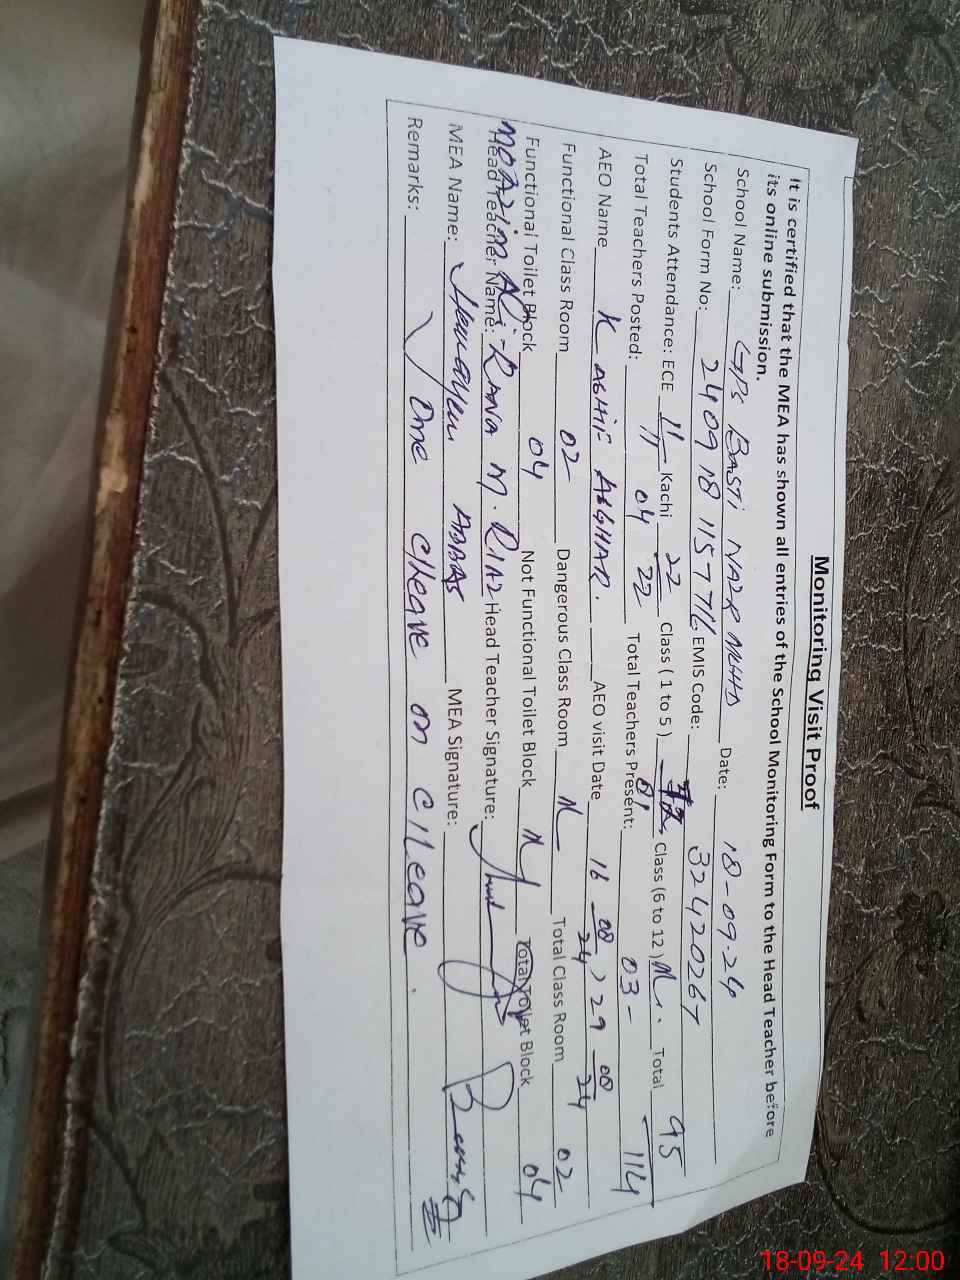 Monitoring Visit Proof
It is certified that the MEA has shown all entries of the School Monitoring Form to the Head Teacher before
its online submission.
School Name: GPS BASTI NAZR MUGHD Date: 18-09-24
School Form No: 2409 18 115776 EMIS Code: 32420267
Students Attendance: ECE 11 Kachi 22 22 Class ( 1 to 5 ) 81 Class (6 to 12 ) N. Total 95 114
Total Teachers Posted: 04 Total Teachers Present: 03 -
AEO Name KASHIF ASGHAR. AEO visit Date 16 08 24 , 29 08 24
Functional Class Room 02 Dangerous Class Room N Total Class Room 02
Functional Toilet Block 04 Not Functional Toilet Block N Total Toilet Block 04
Head Teacher Name: RANA M. RIAZ Head Teacher Signature:
MEA Name: Humayun ABBAS MEA Signature:
Remarks: One C/leave on C/leave.
18-09-24 12:00